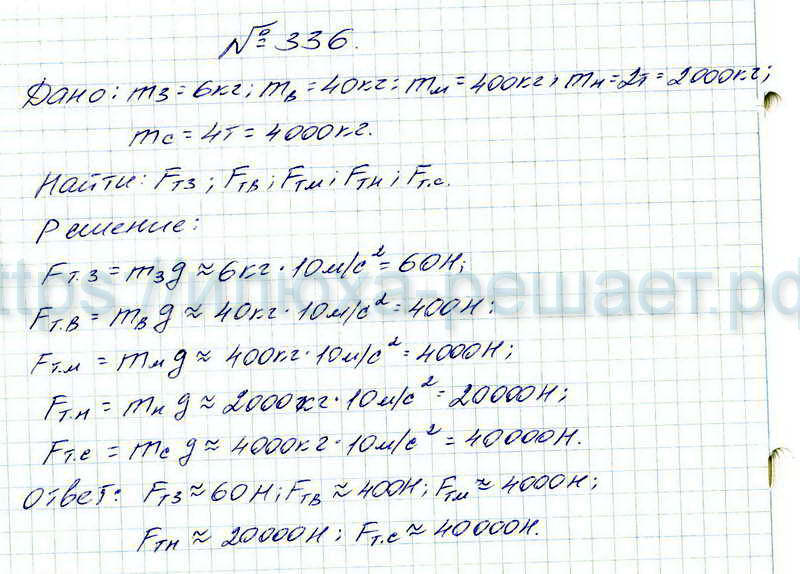 № 336.
Дано: mз = 6кг; mв = 40кг; mм = 400кг; mн = 2т = 2000кг;
mс = 4т = 4000кг.
Найти: Fтз; Fтв; Fтм; Fтн; Fт.с.
Решение:
Fт.з = mзg ≈ 6кг · 10м/с² = 60Н;
https://илюха-решает.рф
Fт.в = mв g ≈ 40кг · 10м/с² = 400Н;
Fт.м = mм g ≈ 400кг · 10м/с² = 4000Н;
Fт.н = mн g ≈ 2000кг · 10м/с² = 20000Н;
Fт.с = mс g ≈ 4000кг · 10м/с² = 40000Н.
Ответ: Fтз ≈ 60Н; Fтв ≈ 400Н; Fтм ≈ 4000Н;
Fтн ≈ 20000Н; Fт.с ≈ 40000Н.